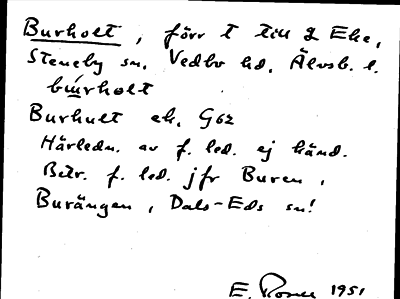 Burholt, förr t till 2 Ehe,
Steneby sn, Vedbo hd, Älvsb. l.
búrholt
Burhult ek. G62
Härledn. av f. led. ej känd.
Betr. f. led. jfr Buren,
Burängen, Dals-Eds sn!
E. 1951